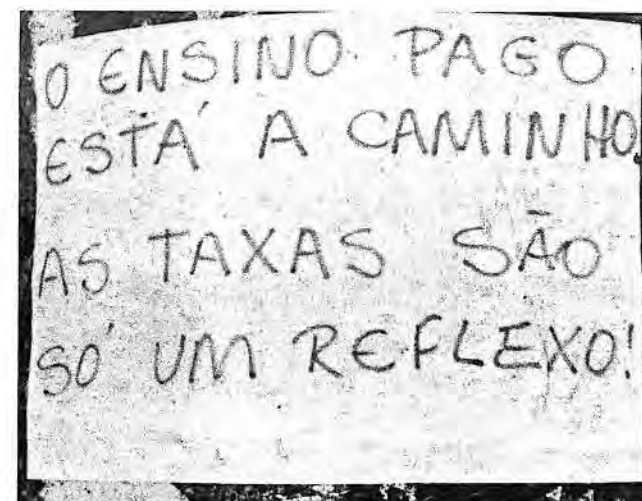 O ENSINO PAGO
ESTÁ A CAMINHO.
AS TAXAS SÃO
SÓ UM REFLEXO!